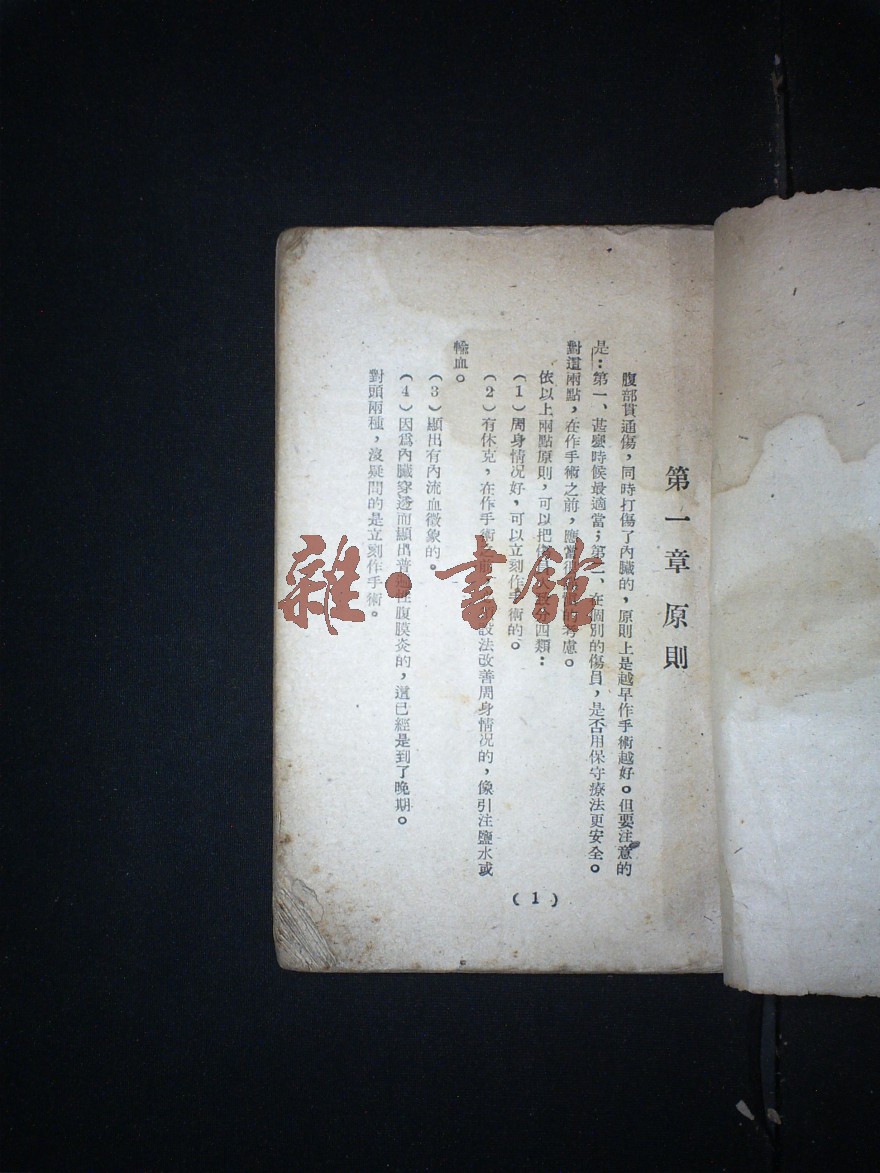 第一章 原則
腹部貫通傷，同時打傷了內臟的，原則上是越早作手術越好。但要注意的
是：第一、甚麼時候最適當；第二、在個別的傷員，是否用保守療法更安全。
對這兩點，在作手術之前，應當很考慮。
依以上兩點原則，可以把傷分四類：
（1）周身情况好，可以立刻作手術的。
（2）有休克，在作手術設法改善周身情况的，像引注鹽水或
輸血。
（3）顯出有內流血徵象的。
（4）因爲內臟穿透而顯出普性腹膜炎的，這已經是到了晚期。
對頭兩種，沒疑問的是立刻作手術。
(1)
雜·書館